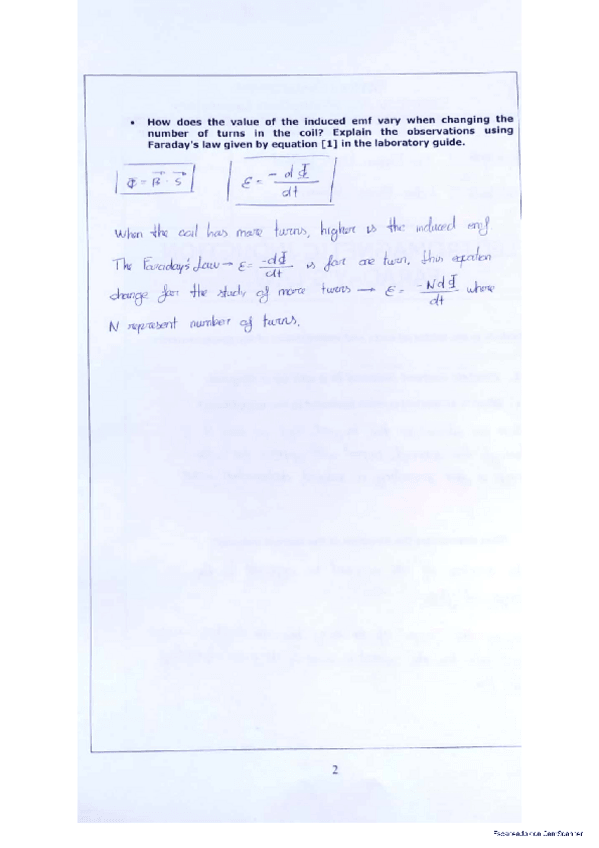 • How does the value of the induced emf vary when changing the
number of turns in the coil? Explain the observations using
Faraday's law given by equation [1] in the laboratory guide.
Φ = B⃗ · S⃗    ε = -dΦ/dt
When the coil has more turns, higher is the induced emf
The Faraday's Law → ε = -dΦ/dt is for one turn, this equation
change for the study of more turns → ε = -NdΦ/dt where
N represent number of turns.
2